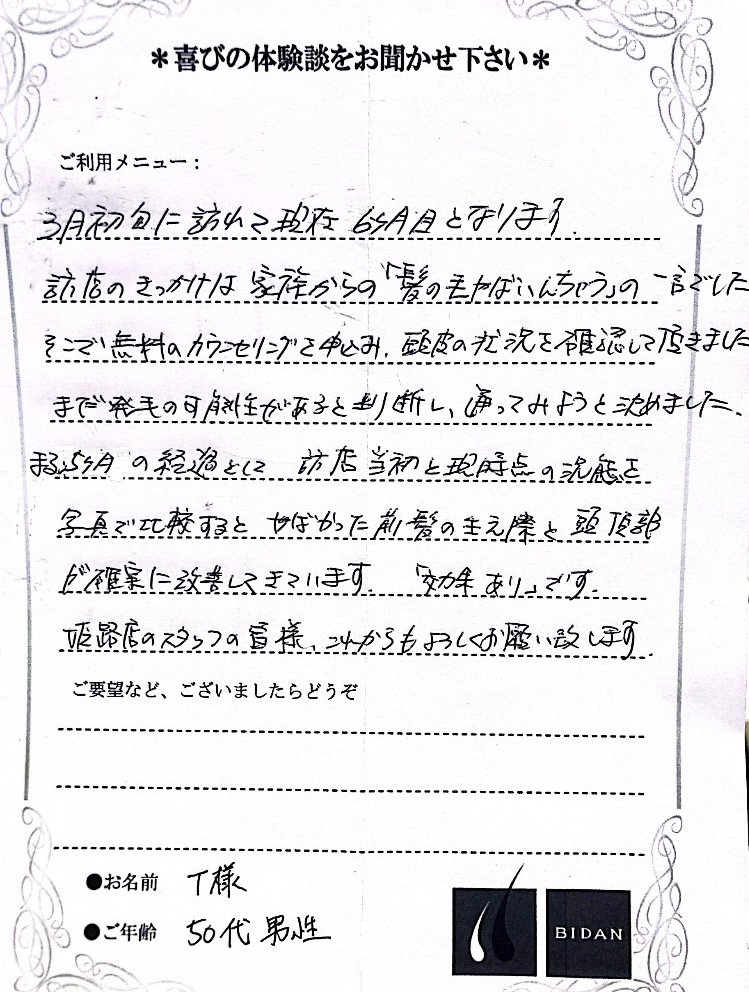 ＊喜びの体験談をお聞かせ下さい＊
ご利用メニュー：
3月初旬に訪れて現在 6ヶ月目となります。
訪店のきっかけは 家族からの「髪の毛やばいんちゃう」の一言でした
そこで無料のカウンセリングを申込み、頭皮の状況を確認して頂きました
まだ発毛の可能性があると判断し、通ってみようと決めました。
まる5ヶ月の経過として 訪店当初と現時点の状態を
写真で比較すると やばかった前髪の生え際と頭頂部
が確実に改善してきています。「効果あり」です。
姫路店のスタッフの皆様、これからもよろしくお願い致します。
ご要望など、ございましたらどうぞ
●お名前 T様
●ご年齢 50代 男性
BIDAN